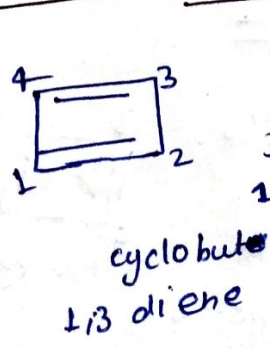 4 3
1 2
1
cyclobute
1,3 diene